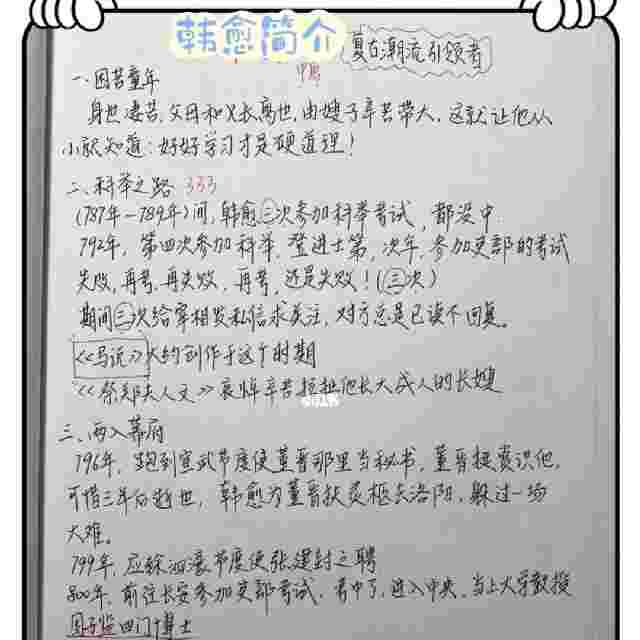 韩愈简介
复古潮流引领者
一、困苦童年
中唐
身世凄苦,父母和兄长离世,由嫂子辛苦带大,这就让他从
小就知道:好好学习才是硬道理!
二、科举之路 333
(787年-789年)间,韩愈三次参加科举考试,都没中
792年,第四次参加科举,登进士第,次年,参加吏部的考试
失败,再考,再失败,再考,还是失败!(三次)
期间三次给宰相发私信求关注,对方总是已读不回复。
《马说》大约创作于这个时期
《祭郑夫人文》哀悼辛苦 他长大成人的长嫂
三、两入幕府
796年,跑到宣武节度使董晋那里当秘书,董晋挺赏识他,
可惜三年后逝世,韩愈为董晋扶灵柩去洛阳,躲过一场
大难。
799年,应徐泗濠节度使张建封之聘
800年,前往长安参加吏部考试,考中了,进入中央,当上大学教授
国子监四门博士